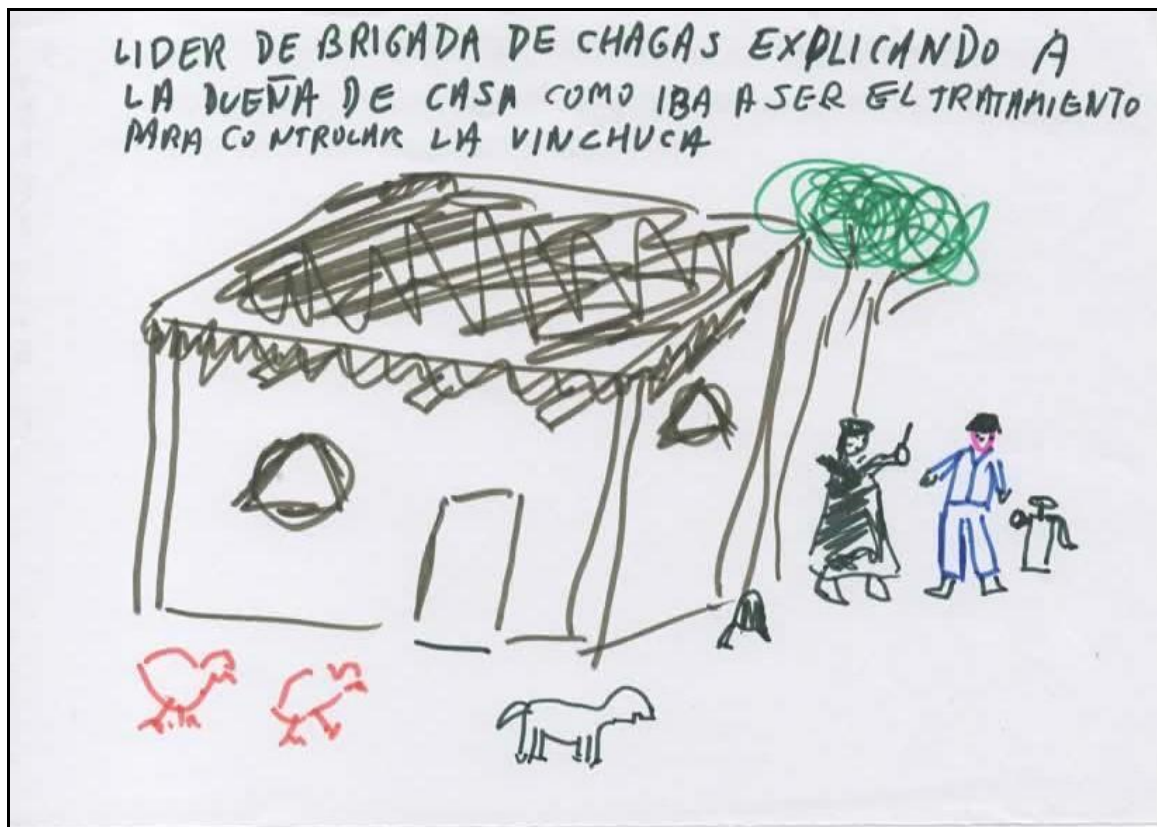 LIDER DE BRIGADA DE CHAGAS EXPLICANDO A
LA DUEÑA DE CASA COMO IBA A SER EL TRATAMIENTO
PARA CONTROLAR LA VINCHUCA